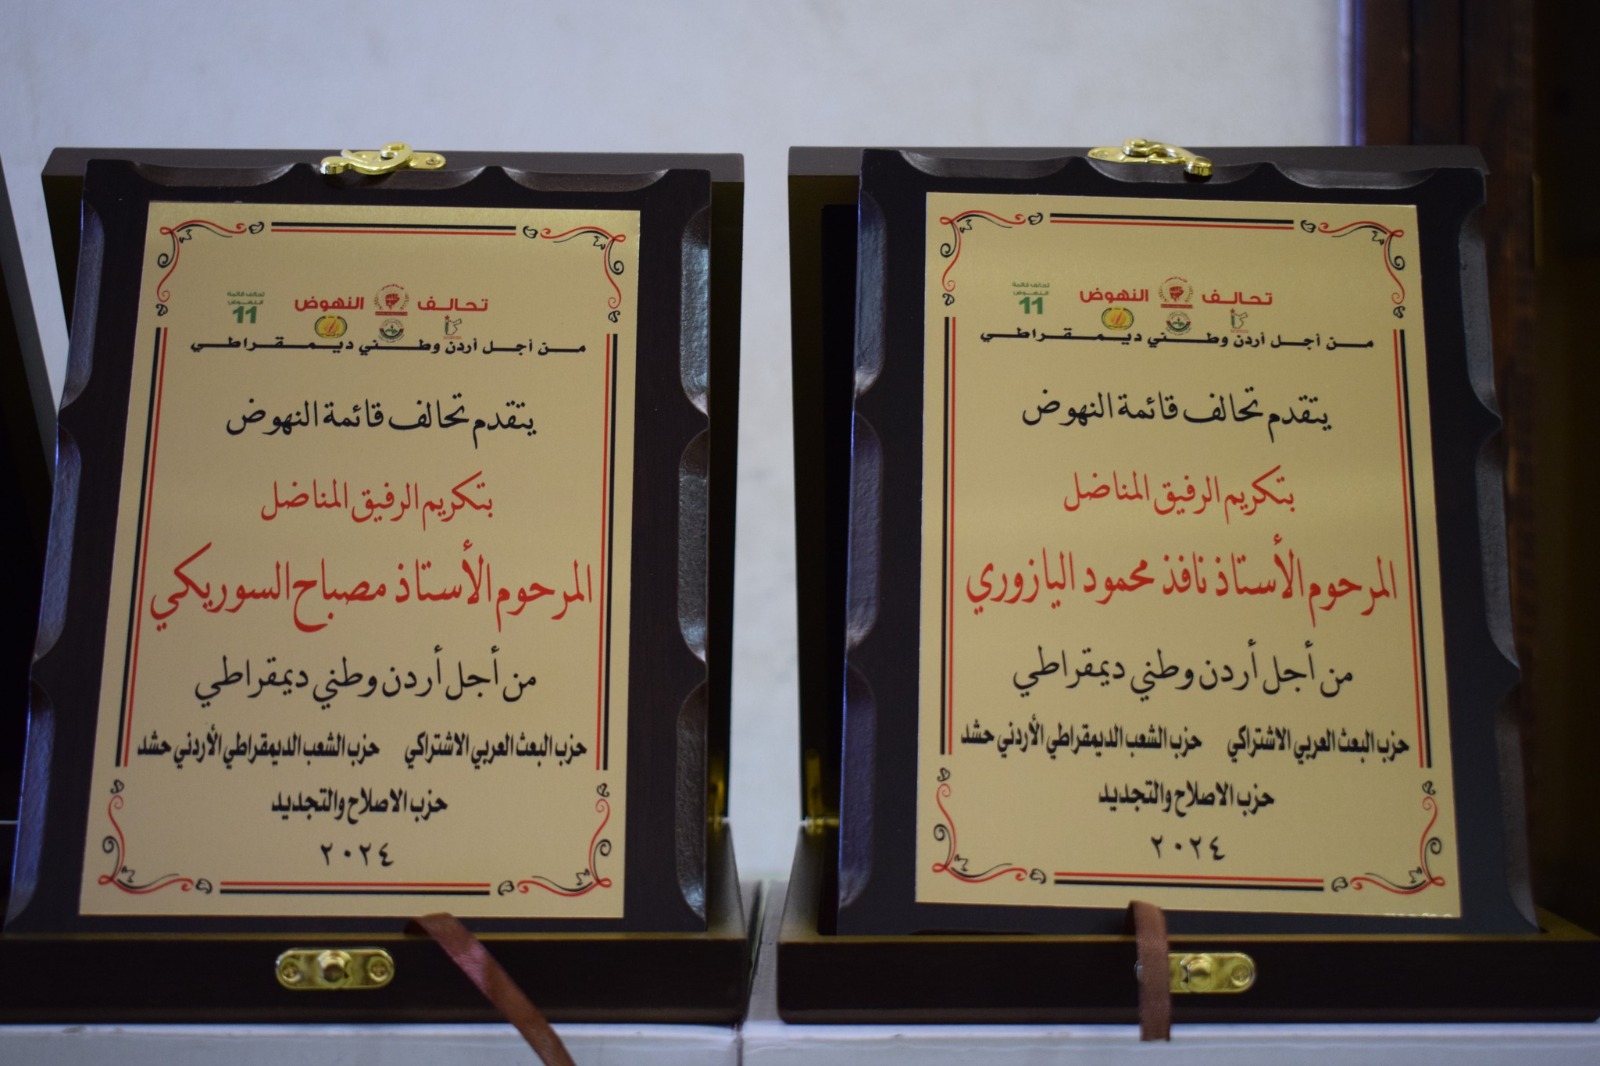 تحالف النهوض
تحالف قائمة
النهوض
11
من أجل أردن وطني ديمقراطي
يتقدم تحالف قائمة النهوض
بتكريم الرفيق المناضل
المرحوم الأستاذ مصباح السوريكي
من أجل أردن وطني ديمقراطي
حزب البعث العربي الاشتراكي حزب الشعب الديمقراطي الأردني حشد
حزب الاصلاح والتجديد
٢٠٢٤
تحالف النهوض
تحالف قائمة
النهوض
11
من أجل أردن وطني ديمقراطي
يتقدم تحالف قائمة النهوض
بتكريم الرفيق المناضل
المرحوم الأستاذ نافذ محمود اليازوري
من أجل أردن وطني ديمقراطي
حزب البعث العربي الاشتراكي حزب الشعب الديمقراطي الأردني حشد
حزب الاصلاح والتجديد
٢٠٢٤